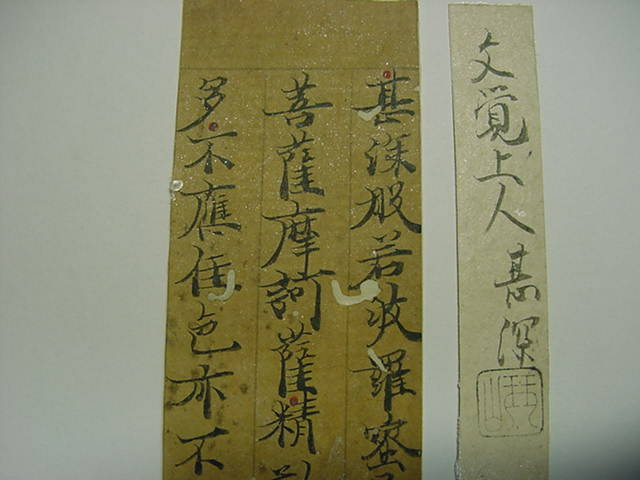 文覚上人 甚深
甚深般若波羅蜜
菩薩摩訶薩精
多不應住色亦不